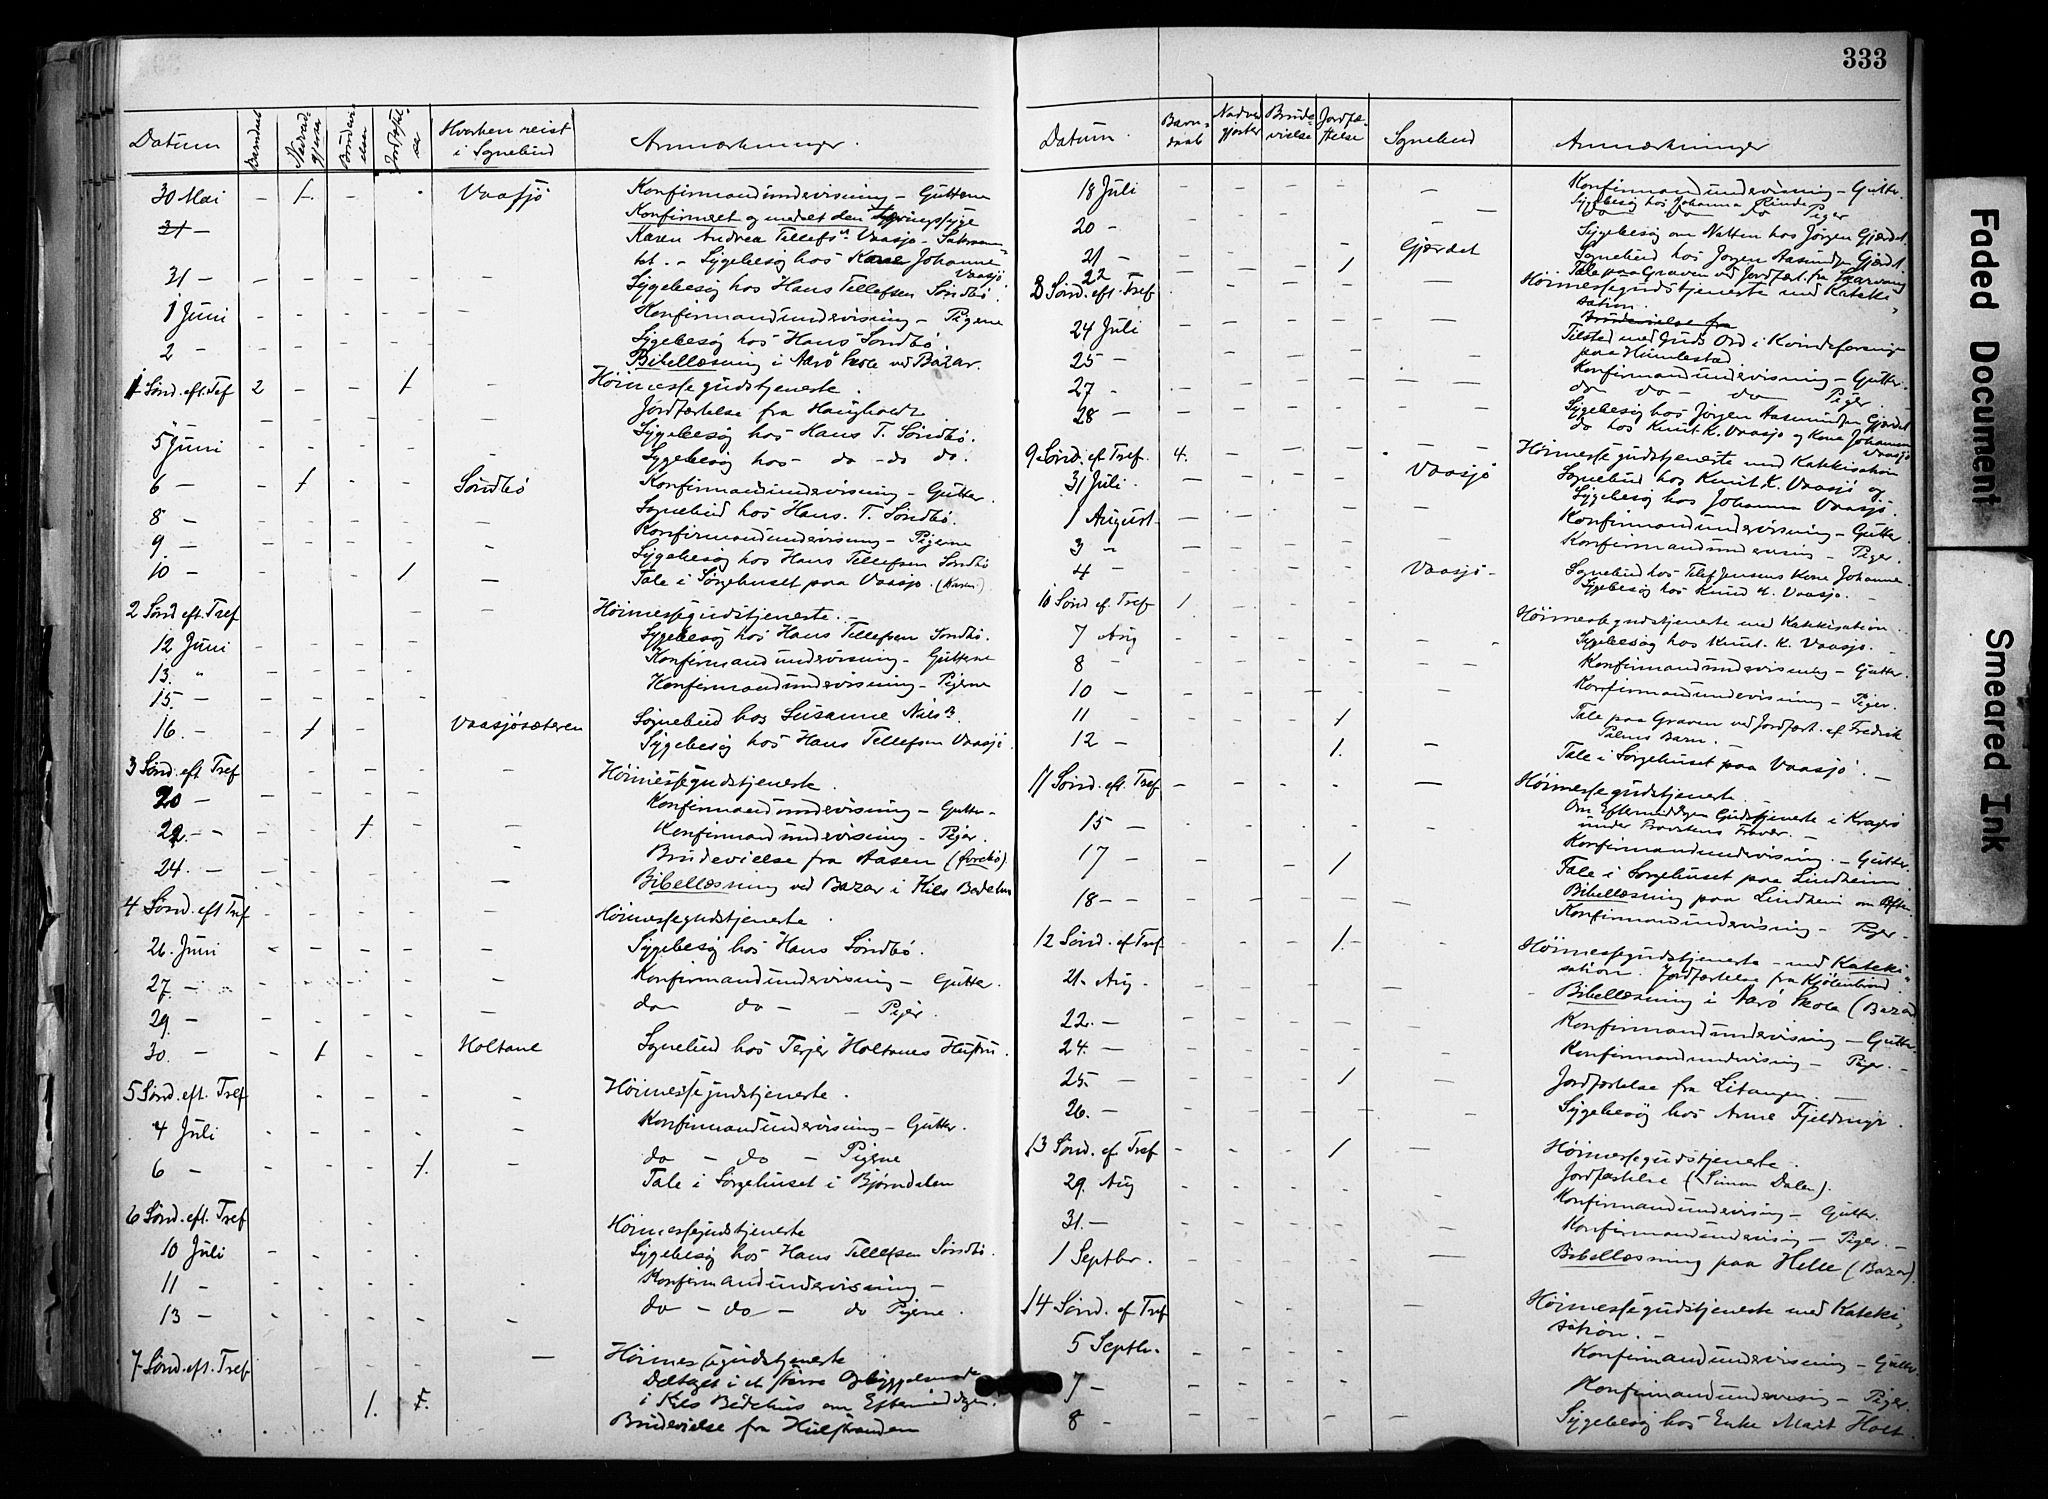 333
Datum Barndaab Nadvergjæster Brudevielse Jordfæstelse Hvorhen reist i Sognebud Anmærkninger.
30 Mai - 1. - . Vaasjö Konfirmandundervisning - Guttene
Konfirmeret og meddelt den tæringssyge
Karen Andrea Tellefsn Vaasjö - Sakramen-
tet. - Sygebesög hos Kone Johanne Vaasjö
31 - Sygebesög hos Hans Tellefsen Söndbö.
1 Juni - Konfirmandundervisning - Pigerne
2 - Sygebesög hos Hans Söndbö.
Bibellæsning i Aarö Skole ved Bazar.
1 Sönd. eft. Tref 2 - - 1 - Höimessegudstjeneste.
Jordfæstelse fra Haugholt
5 Juni Sygebesög hos Hans T. Söndbö.
Sygebesög hos - do - do do.
6 - - 1 - - Söndbö Konfirmandundervisning - Gutter.
8 - Sognebud hos Hans. T. Söndbö.
9. - Konfirmandundervisning - Pigerne
Sygebesög hos Hans Tellefsen Söndbö
10 - 1 - Tale i Sörgehuset paa Vaasjö. (Karen)
2 Sönd eft. Tref Höimessegudstjeneste. -
12 Juni Sygebesög hos Hans Tellefsen Söndbö.
13. " Konfirmandundervisning - Guttene
15. - Konfirmandundervisning - Pigerne
16. - - 1 - Vaasjösæteren Sognebud hos Susanne Nilsn.
Sygebesög hos Hans Tellefsen Vaasjö.
3 Sönd. eft Tref Höimessegudstjeneste.
20 - Konfirmandundervisning - Gutter -
22. - - - 1 - Konfirmandundervisning - Piger.
24. - Brudevielse fra Aasen
Bibellæsning ved Bazar i Kils Bedehus
4 Sönd. eft Tref Höimessegudstjeneste.
26. Juni Sygebesög hos Hans Söndbö.
27. - Konfirmandundervisning - Gutter.
29. - do do - - Piger.
30. - - 1 - - Holtane Sognebud hos Terjer Holtanes Hustru.
5 Sönd. eft. Tref Höimessegudstjeneste.
4 Juli Konfirmandundervisning - Gutter.
6 - 1. - do - do - Pigerne
Tale i Sörgehuset i Björndalen
6 Sönd. eft. Tref Höimessegudstjeneste
10 Juli Sygebesög hos Hans Tellefsen Söndbö.
11 - Konfirmandundervisning -
13 - do - do - do Pigerne.
7 Sönd. eft. Tref - Höimessegudstjeneste
Deltaget i et större Opbyggelsesmöde
i Kils Bedehus om Eftermiddagen.
1. Brudevielse fra Hulstranden
Datum. Barndaab Nadvgjæster Brudevielse Jordfæstelse Sognebud Anmærkninger
18 Juli Konfirmandundervisning - Gutter.
Sygebesög hos Johanna Rinde
20 - do do do Piger
Sygebesög om Natten hos Jörgen Gjærdet.
21 - Gjærdet Sognebud hos Jörgen Aasmundsen Gjærdet.
22 1 Tale paa Graven ved Jordfæst. fra Skarvang
8 Sönd. eft. Tref Höimessegudstjeneste med Kateki-
sation.
24 Juli Brudevielse fra
Tilsted med Guds Ord i Kvindeforening
25 - paa Humlestad.
27 - Konfirmandundervisning - Gutter.
do do - do Piger.
28 - Sygebesög hos Jörgen Aasmundsen Gjærdet
do hos Knut K. Vaasjö og Kone Johannes Vaasjö
9 Sönd. ef. Tref. 4. Höimessegudstjeneste med Katekisation
31 Juli. Vaasjö Sognebud hos Knut K. Vaasjö og.
Sygebesög hos Johanna Vaasjö.
1 August. Konfirmandundervisning - Gutter.
3 - Konfirmandundervisning - Piger.
4 - Vaasjö - Sognebud hos Tellef Jensens Kone Johanne
Sygebesög hos Knud K. Vaasjö.
10 Sönd ef. Tref 1. Höimessegudstjeneste med Katekisation
7 Aug Sygebesög hos Knut. K. Vaasjö.
8 - Konfirmandundervisning - Gutter.
10 - Konfirmandundervisning - Piger.
11 - 1 Tale paa Graven ved Jordfæst. af Fredrik
Palms Barn.
12 - 1. - Tale i Sörgehuset paa Vaasjö.
11 Sönd. eft. Tref Höimessegudstjeneste
Om Eftermiddagen Gudstjeneste i Kragerö
15 - under Provstens Fravær.
Konfirmandundervisning. - Gutter.
17 - 1 Tale i Sörgehuset paa Lindheim.
18 - - Bibellæsning paa Lindheim om Aften.
Konfirmandundervisning - Piger -
12 Sönd. ef Tref 1. - Höimessegudstjeneste - med Kateki-
sation. Jordfæstelse fra Kjölebrönd.
21. Aug. Bibellæsning i Aarö Skole (Bazar
22. - Konfirmandundervisning - Gutter.
24. - Konfirmandundervisning - Piger. -
25. - 1 - Jordfæstelse fra Litangen
26. - Sygebesög hos Anne Fjeldmyr.
13 Sönd. ef. Tref 1 - Höimessegudstjeneste.
Jordfæstelse (Simon Dalen).
29. Aug Konfirmandundervisning - Gutter.
31. - Konfirmandundervisning - Piger. -
1 Septbr. Bibellæsning paa Helle (Bazar).
14 Sönd. ef Tref Höimessegudstjeneste med Kateki-
sation. -
5 Septbr. Konfirmandundervisning - Gutter.
7 - Konfirmandundervisning - Piger.
8 - Sygebesög hos Enke Marit Holt.
Faded Document
Smeared Ink